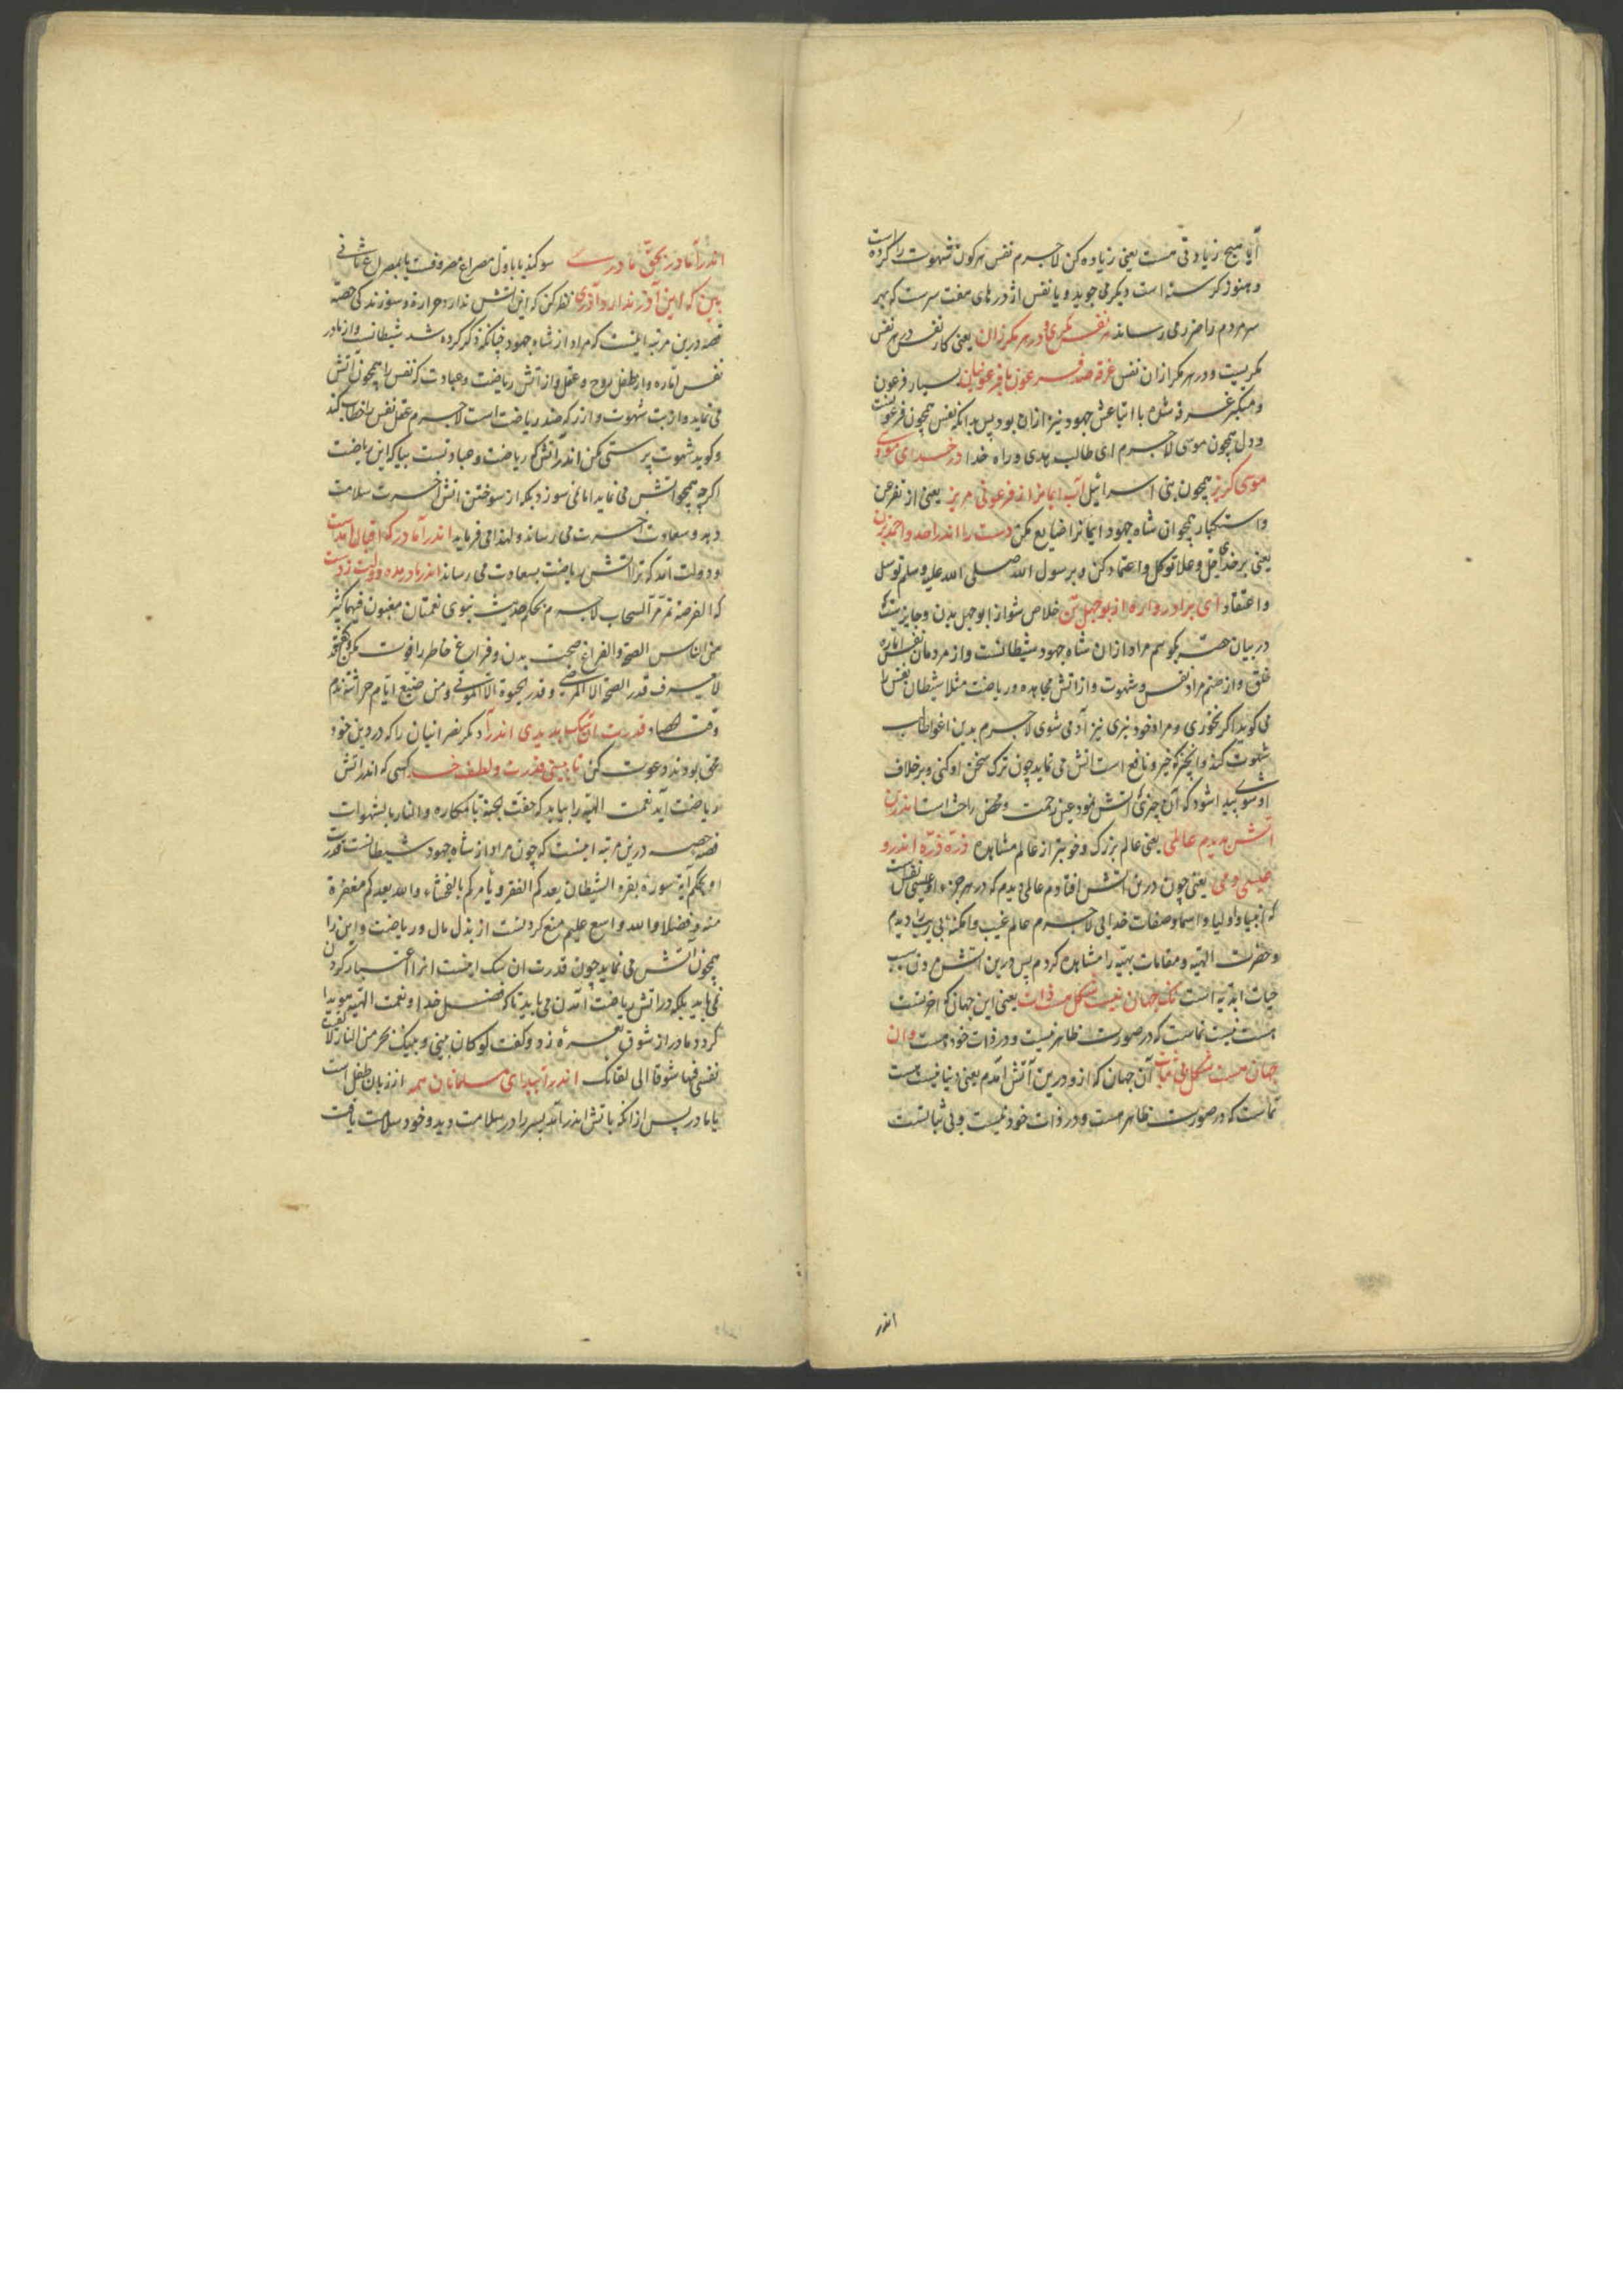 آیا هیچ زیادتی هست یعنی زیاده کن لاجرم نفس هر کون شهوت را کرده است
و هنوز کرسنه است دیکر می جوید و یا نفس اژدرهای هفت سرست که بهر
سر مردم را ضرر می رساند هر نفس مکری و در هر مکر زان یعنی کار نفس در هر نفس
مکریست و در هر مکر ازان نفس غرقه صد فرعون با فرعونیان بسیار فرعون
و متکبر غرقه شده با اتباعش جهود نیز ازان بود پس بدانکه نفس همچون فرعونست
و دل همچون موسی لاجرم ای طالب هدی و راه خدا در خدای موسی و
موسی کریز همچون بنی اسرائیل آب ایمانرا از فرعونی مریز یعنی از تفرعن
و استکبار همچو ان شاه جهود ایمانرا ضایع مکن دست را اندر احد و احمد بزن
یعنی بر خدای جل و علا توکل و اعتماد کن و بر رسول الله صلی الله علیه و سلم توسل
و اعتقاد ای برادر واره از بوجهل تن خلاص شو از ابوجهل بدن و جایزست که
در بیان حصه بکوییم مراد ازان شاه جهود شیطانست و از مردمان نفس اماره
خلق و از صنم مراد نفس و شهوت و از اتش مجاهده و ریاضت مثلا شیطان نفس را
می کوید اکر نخوری و مراد خود نبری نیز آدمی شوی لاجرم بدین اغوا طالب
شهوت کند و انچیز که خیر و نافع است اتش می نماید چون ترک سخن او کنی و بر خلاف
او شوی پیدا شود که آن چیزی که اتش نمود عین رحمت و محض راحت است اندرین
آتش بدیدم عالمی یعنی عالم بزرک و خوبتر از عالم مشاهده ذره ذره اندرو
عیسی دمی یعنی چون درین اتش افتادم عالمی دیدم که در هر جزء او عیسی نفس است
که انبیا و اولیا و اسما و صفات خدایی لاجرم عالم غیب و امکنه بی ریب دیدم
و حضرت الهیه و مقامات بهیه را مشاهده کردم پس درین اتش مردن سبب
حیات ابدیه است نک جهان نیست شکل هست ذات یعنی این جهان که اخرتست
هست نیست نماست که در صورت ظاهر نیست و در ذات خود هست وان
جهان هست شکل بی ثبات آن جهان که ازو درین آتش آمدم یعنی دنیا نیست هست
نماست که در صورت ظاهر هست و در ذات خود نیست و بی ثباتست
اندر
اندر آ مادر بحق مادری سوکند یا باول مصراع مصروفست یا بمصراع ثانی
بین که این آذر ندارد آذری نظر کن که این اتش ندارد حرارة و سوزندکی حصه
قصه درین مرتبه اینست که مراد از شاه جهود چنانکه ذکر کرده شد شیطانست و از مادر
نفس اماره و از طفل روح و عقل و از آتش ریاضت و عبادت که نفس را همچون آتش
می نماید و از بت شهوت و از زر که ضد ریاضت است لاجرم عقل نفس را خطاب کند
و کوید شهوت پرستی مکن اندر آتش که ریاضت و عبادتست بیا که این ریاضت
اکرچه همچو اتش می نماید اما نمی سوزد بلکه از سوختن اتش اخرت سلامت
دهد و سعادت اخرت می رساند و لهذا می فرماید اندر آ مادر که اقبال آمدست
و دولت آمد که ترا اتش ریاضت بسعادت می رساند اندر آ مادر مده دولت ز دست
که الفرصة تمر مر السحاب لاجرم بحکم حدیث نبوی نعمتان مغبون فیهما کثیر
من الناس الصحة و الفراغ صحت بدن و فراغ خاطر را فوت مکن فقد
لا یعرف قدر الصحة الا المرضی و قدر الحیوة الا الموتی و من ضیع ایام حراثته ندم
وقت الحصاد قدرت آن سک بدیدی اندر آ دیکر نصرانیان را که در دین خود
محق بودند دعوت کن تا ببینی قدرت و لطف خدا کسی که اندر اتش
ریاضت آید نعمت الهیه را بیابد که حفت الجنة بالمکاره و النار بالشهوات
قصه حصه درین مرتبه اینست که چون مراد از شاه جهود شیطانست قدرت
او بحکم آیة سورۀ بقره الشیطان یعدکم الفقر و یأمرکم بالفحشاء والله یعدکم مغفرة
منه و فضلا والله واسع علیم منع کردنست از بذل مال و ریاضت و این را
همچون اتش می نماید چون قدرت ان سک اینست انرا اعتبار کردن
نمی باید بلکه در اتش ریاضت آمدن می باید تا که فضل خدا و نعمت الهیه هویدا
کردد مادر از شوق نعره زد و کفت کودکان بینی و بینک بحر من النار لألقیت
نفسی فیها شوقا الی لقائک اندر آیید ای مسلمانان همه از زبان طفل است
یا مادر پس ازانکه باتش اندر آمد پسر را در سلامت دید و خود سلامت یافت